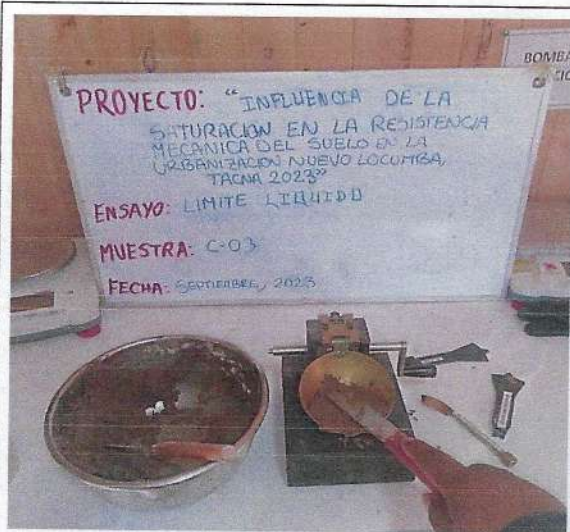 PROYECTO: "INFLUENCIA DE LA
SATURACION EN LA RESISTENCIA
MECANICA DEL SUELO EN LA
URBANIZACION NUEVO LOCUMBA,
TACNA 2023"
ENSAYO: LIMITE LIQUIDO
MUESTRA: C-03
FECHA: SEPTIEMBRE, 2023
BOMBA